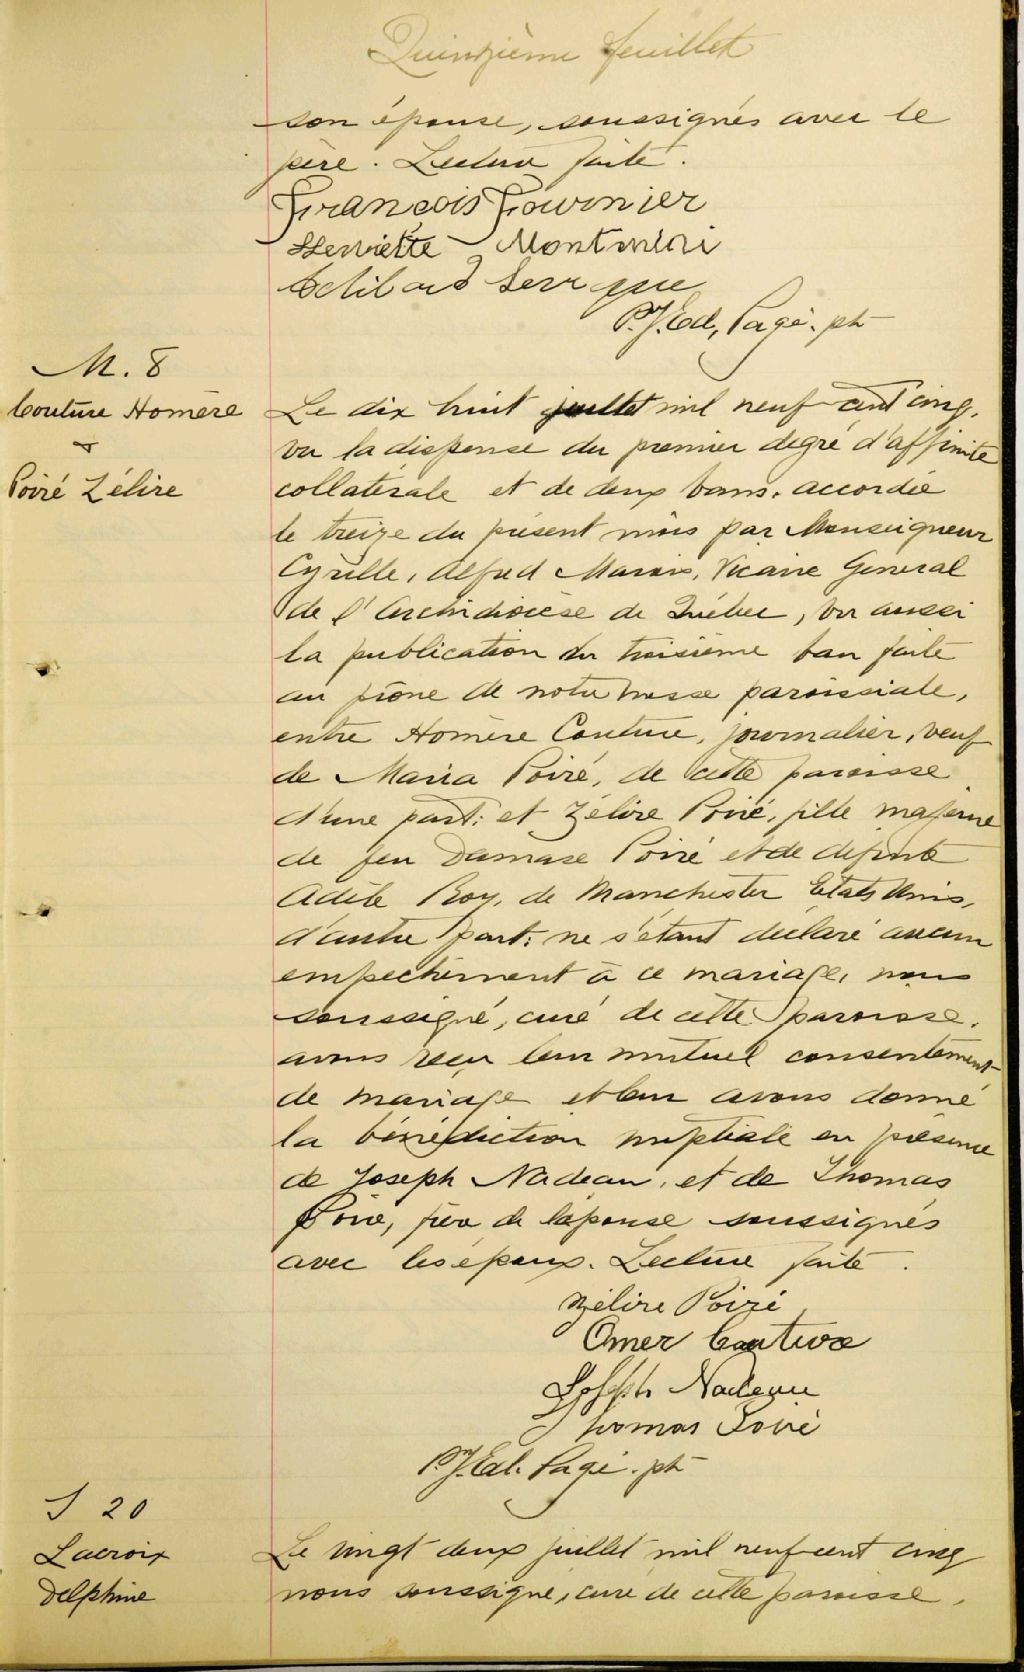 Quinzième feuillet
son épouse, soussignés avec le
père. Lecture faite.
François Fournier
Henriette Montmini
P.J.Ed, Pagé. ptr
M. 8
Couture Homère
&
Poiré Zélire
Le dix huit juillet mil neuf cent cinq,
vu la dispense du premier degré d'affinité
collatérale et de deux bans, accordée
le treize du présent mois par Monseigneur
Cyrille, Alfred Marois, Vicaire General
de l'Archidiocèse de Québec, vu aussi
la publication du troisième ban faite
au prône de notre messe paroissiale,
entre Homère Couture, journalier, veuf
de Maria Poiré, de cette paroisse
d'une part: et Zélire Poiré, fille majeure
de feu Damase Poiré et de défunte
Adèle Roy, de Manchester Etats Unis,
d'autre part: ne s'étant déclaré aucun
empechement à ce mariage, nous
soussigné, curé de cette paroisse,
avons reçu leur mutuel consentement
de mariage et leur avons donné
la bénédiction nuptiale en présence
de Joseph Nadeau, et de Thomas
Poiré, frère de l'épouse soussignés
avec les époux. Lecture faite.
Zélire Poiré
Omer Couture
Joseph Nadeau
Thomas Poiré
P.J.Ed. Pagé. ptr
S 20
Lacroix
Delphine
Le vingt deux juillet mil neuf cent cinq
nous soussigné, curé de cette paroisse,